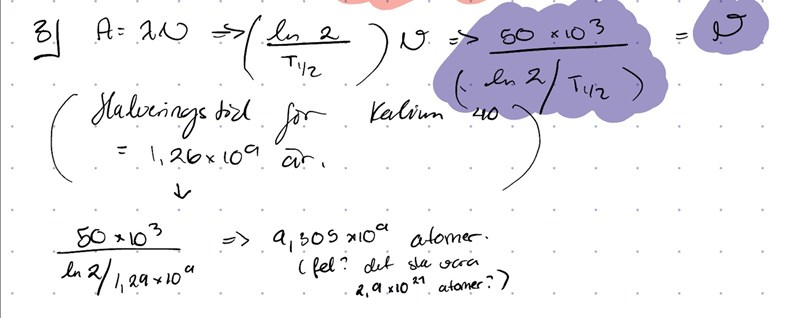 3] A = λN => (ln 2 / T1/2) N => 50 × 10³ / (ln 2 / T1/2) = N
(Halveringstid för Kalium 40
= 1,26 × 10⁹ år.)
↓
50 × 10³ / ln 2 / 1,29 × 10⁹ => 9,305 × 10⁹ atomer.
(fel? det ska vara
2,9 × 10²¹ atomer?)